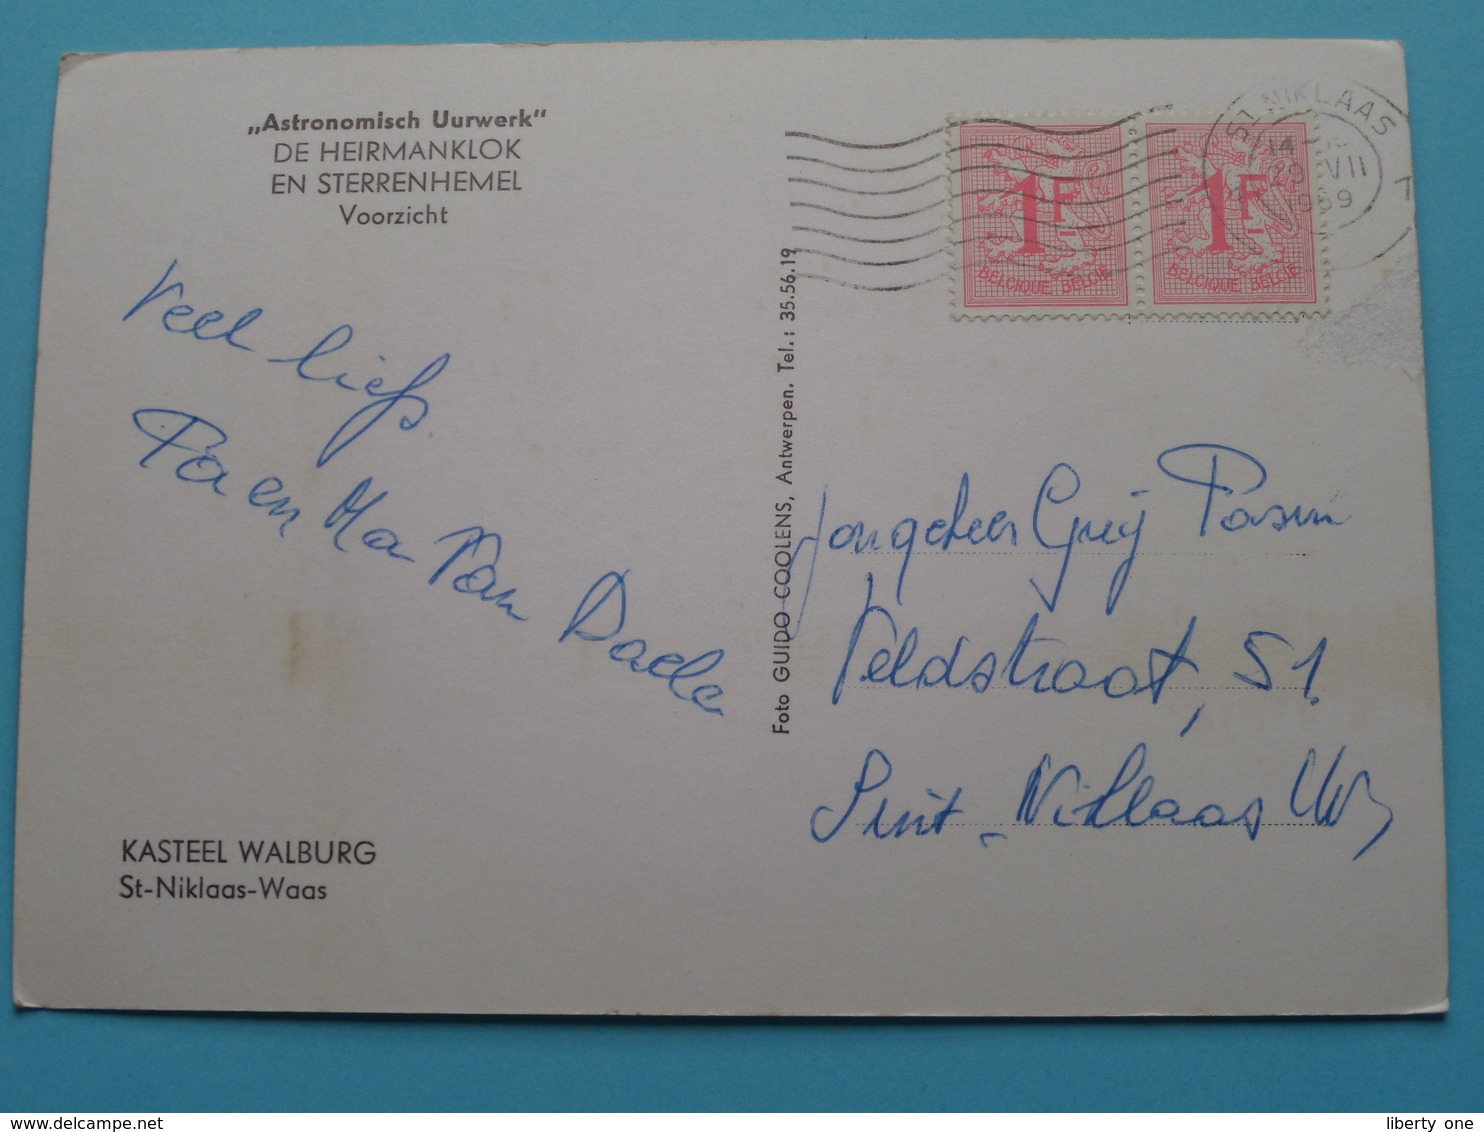 „Astronomisch Uurwerk"
DE HEIRMANKLOK
EN STERRENHEMEL
Voorzicht
Veel liefs
Pa en Ma Van Daele
KASTEEL WALBURG
St-Niklaas-Waas
Foto GUIDO COOLENS, Antwerpen. Tel.: 35.56.19
ST NIKLAAS
14-
VII
1969
1F
BELGIQUE BELGIE
1F
BELGIQUE BELGIE
Jongeheer Guy
Veldstraat, 51.
Sint-Niklaas
Delcampe.net
liberty one